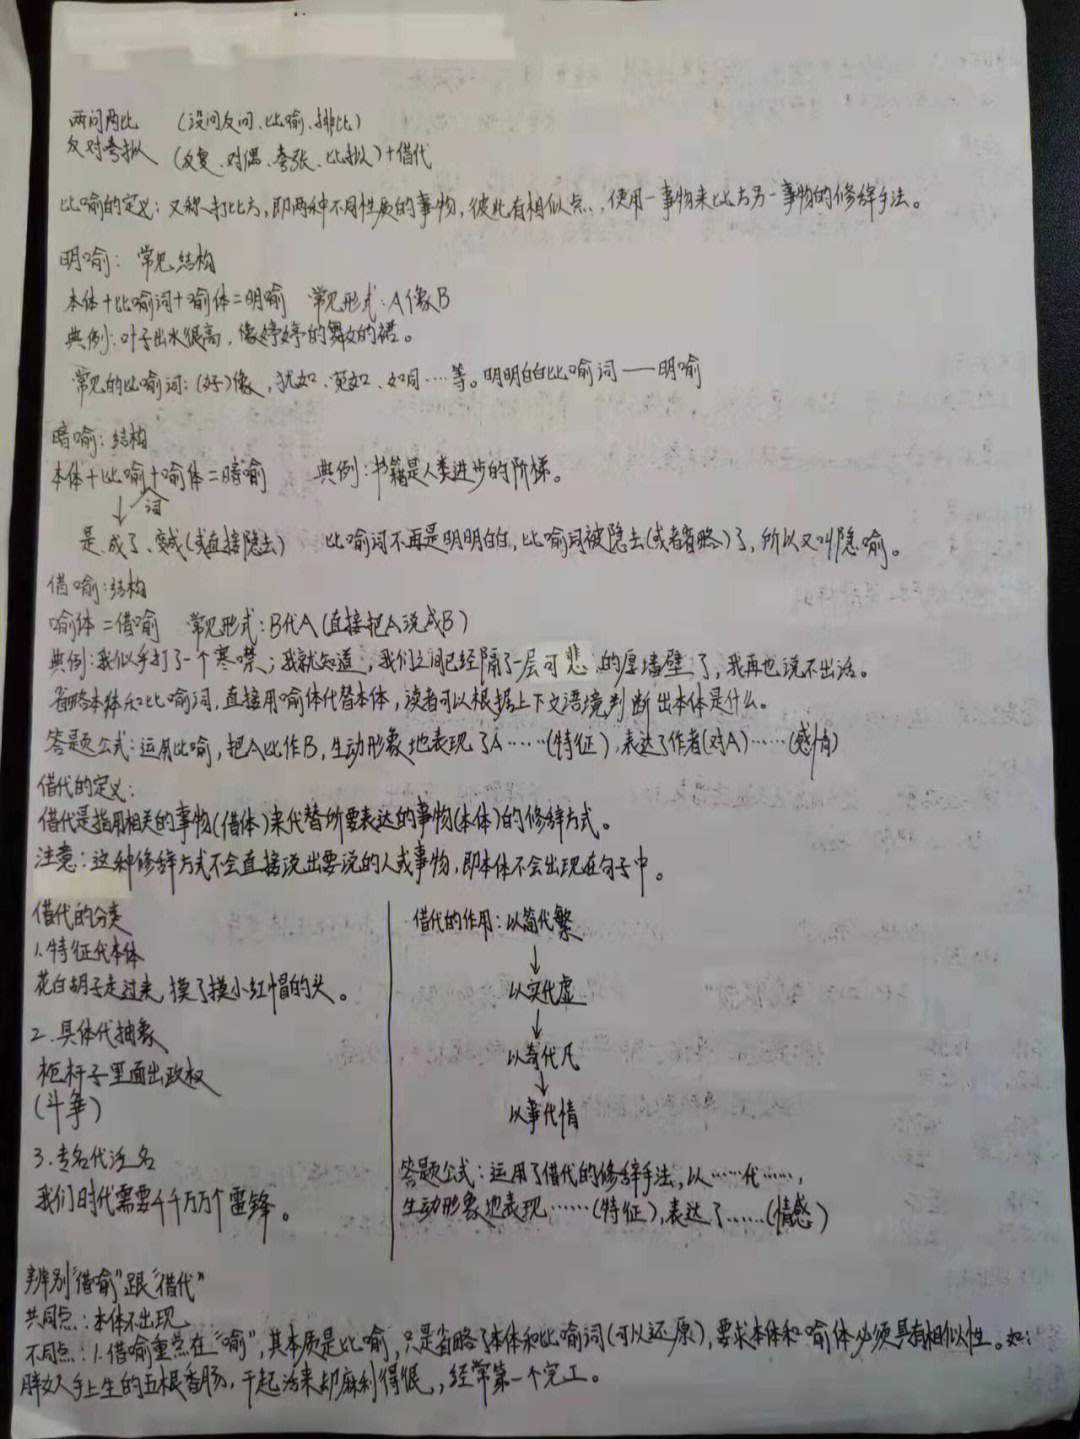 两问两比 (设问反问、比喻、排比)
反对夸拟 (反复、对偶、夸张、比拟)+借代
比喻的定义：又称打比方，即两种不同性质的事物，彼此有相似点，使用一事物来比方另一事物的修辞手法。
明喻：常见结构
本体+比喻词+喻体=明喻 常见形式：A像B
典例：叶子出水很高，像婷婷的舞女的裙。
常见的比喻词：(好)像、犹如、宛如、如同……等。明明白白比喻词——明喻
暗喻：结构
本体+比喻词+喻体=暗喻 典例：书籍是人类进步的阶梯。
↓
是、成了、变成(或直接隐去) 比喻词不再是明明白白，比喻词被隐去(或者省略)了，所以又叫隐喻。
借喻：结构
喻体=借喻 常见形式：B代A(直接把A说成B)
典例：我似乎打了一个寒噤；我就知道，我们之间已经隔了一层可悲的厚墙壁了，我再也说不出话。
省略本体和比喻词，直接用喻体代替本体，读者可以根据上下文语境判断出本体是什么。
答题公式：运用比喻，把A比作B，生动形象地表现了A……(特征)，表达了作者(对A)……(感情)
借代的定义：
借代是指用相关的事物(借体)来代替所要表达的事物(本体)的修辞方式。
注意：这种修辞方式不会直接说出要说的人或事物，即本体不会出现在句子中。
借代的分类
1.特征代本体
花白胡子走过来，摸了摸小红帽的头。
2.具体代抽象
枪杆子里面出政权
(斗争)
3.专名代泛名
我们时代需要千千万万个雷锋。
借代的作用：以简代繁
↓
以实代虚
↓
以奇代凡
↓
以事代情
答题公式：运用了借代的修辞手法，以……代……，
生动形象地表现……(特征)，表达了……(情感)
辨别“借喻”跟“借代”
共同点：本体不出现
不同点：1.借喻重点在“喻”，其本质是比喻，只是省略了本体和比喻词(可以还原)，要求本体和喻体必须具有相似性。如：
胖女人手上生的五根香肠，干起活来却麻利得很，经常第一个完工。